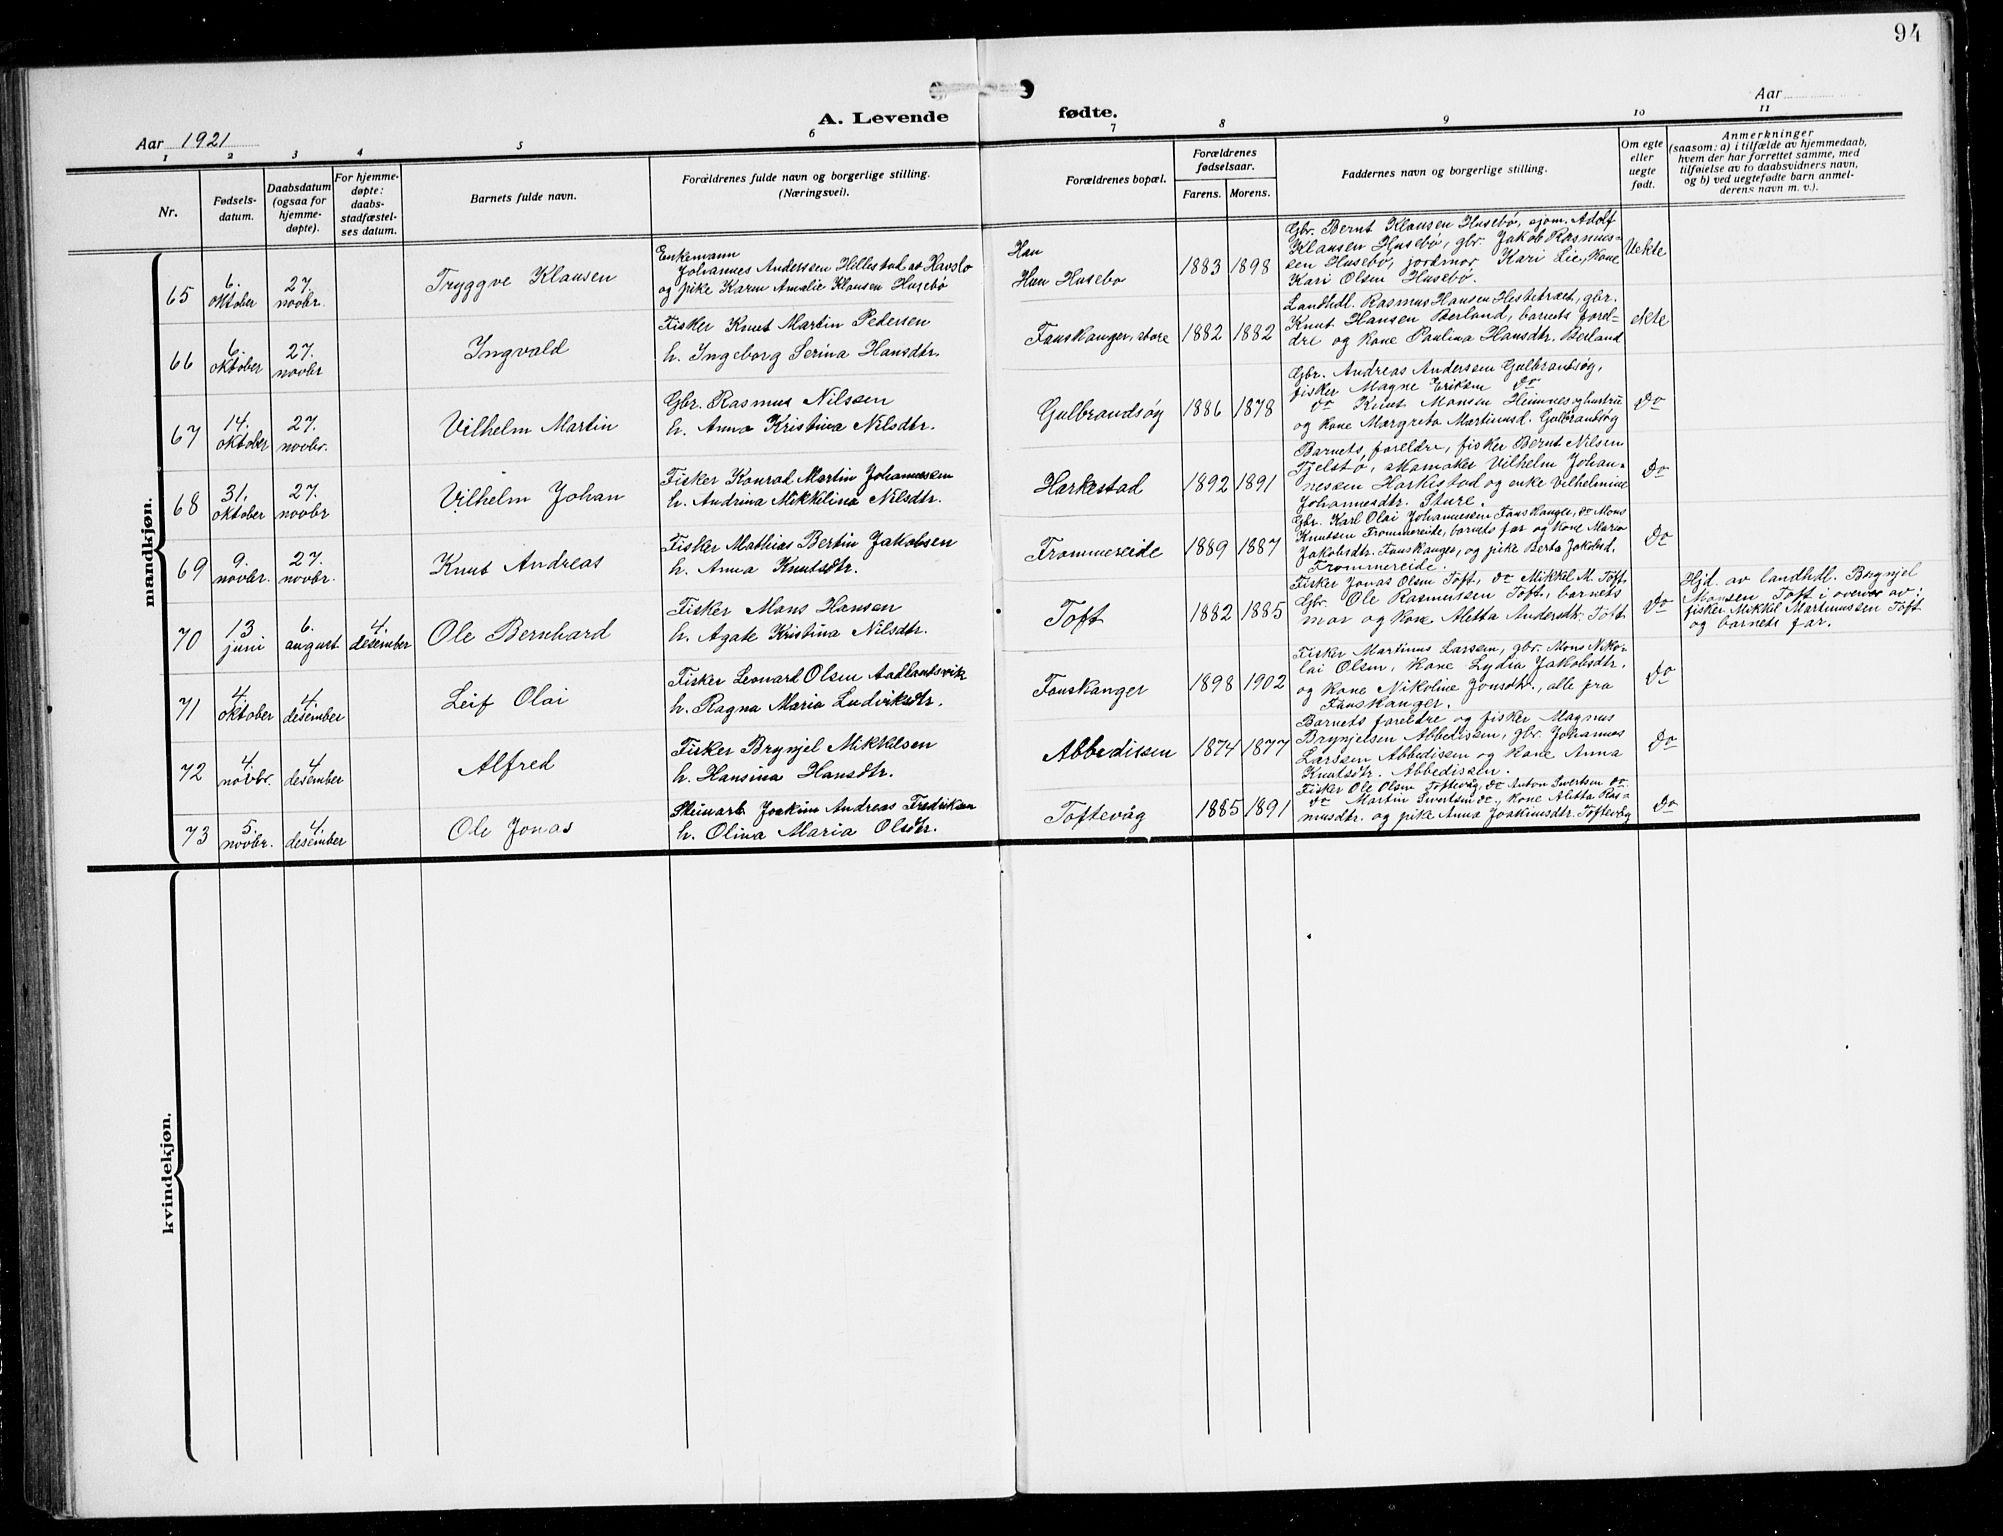 94
A. Levende fødte.
Aar 1921
Aar
1 2 3 4 5 6 7 8 9 10 11
Nr.
Fødsels-
datum.
Daabsdatum
(ogsaa for
hjemme-
døpte).
For hjemme-
døpte:
daabs-
stadfæstel-
ses datum.
Barnets fulde navn.
Forældrenes fulde navn og borgerlige stilling.
(Næringsvei).
Forældrenes bopæl.
Forældrenes
fødselsaar.
Farens. Morens.
Faddernes navn og borgerlige stilling.
Om egte
eller
uegte
født.
Anmerkninger
(saasom: a) i tilfælde av hjemmedaab,
hvem der har forrettet samme, med
tilføielse av to daabsvidners navn,
og b) ved uegtefødte barn anmel-
derens navn m. v.).
mandkjøn.
65
6.
oktober
27.
novbr.
Tryggve Klausen
Enkemann
Johannes Anderssen Hillestad at Havslo
og pike Karen Amalie Klausen Husebö
Han
Hun Husebo
1883 1898
Gbr. Bernt Klausen Husebö, sjöm. Adolf
Klausen Husebö, gbr. Jakob Rasmus-
sen Husebö, jordmor Kari Lie, kone
Kari Olsen Husebö.
Uekte
66
6.
oktober
27.
novbr
Ingvald
Fisker Knut Martin Pedersen
h. Ingeborg Serina Hansdtr.
Fanskanger, store
1882 1882
Landhdl. Rasmus Hansen Hestetræet, gbr.
Knut Hansen Berland, barnets forel-
dre og kone Paulina Hansdtr. Berland
ekte
67
14.
oktober
27.
novbr.
Vilhelm Martin
Gbr. Rasmus Nilssen
h. Anna Kristina Nilsdtr.
Gulbrandsöy
1886 1878
Gbr. Andreas Andersen Gulbrantsöy,
fisker Magne Eriksen do
do Knut Monsen Heimnes, ghustru
og kone Margreta Martinusd. Gulbrantsöy
do
68
31.
oktober
27.
novbr
Vilhelm Johan
Fisker Konrad Martin Johannessen
h. Andrina Mikkelina Nilsdtr.
Harkestad
1892 1891
Barnets foreldre, fisker Bernt Nilsen
Tjelstö, Johan-
nessen Harkestad og enke Vilhelmine
Johannesdtr. Sture.
do
69
9.
novbr.
27.
novbr.
Knut Andreas
Fisker Mathias Bertin Jakobsen
h. Anna Knutsdtr.
Frommereide
1889 1887
Gbr. Karl Olai Johannessen Fanskanger, do Mons
Knutsen Frommereide, barnets far og kone Maria
Jakobsdtr. Fanskanger, og pike Berta Jakobsd.
Frommereide.
do
70
13
juni
6.
august
4.
desember
Ole Bernhard
Fisker Mons Hansen
h. Agate Kristina Nilsdtr.
Toft
1882 1885
Fisker Jonas Olsen Toft, do Mikkel M. Toft
Gbr. Ole Rasmussen Toft, barnets
mor og kone Aletta Andersdtr. Toft
do
Hjd. av landhdl. Brynjel
Monsen Toft i overvær av:
fisker Mikkel Martinussen Toft
og barnets far.
71
4
oktober
4.
desember
Leif Olai
Fisker Leonard Olsen Aadlandsvik
h. Ragna Maria Ludviksdtr.
Fanskanger
1898 1902
Fisker Martinus Larsen, gbr. Mons Niko-
lai Olsen, kone Lydia Jakobsdtr.
og kone Nikoline Jonsdtr., alle fra
Fanskanger.
do
72
4.
novbr.
4.
desember
Alfred
Fisker Brynjel Mikkelsen
h. Hansina Hansdtr.
Abbedissen
1874 1877
Barnets foreldre og fisker Magnus
Brynjelsen Abbedissen, gbr. Johannes
Larssen Abbedissen og kone Anna
Knutsdtr. Abbedissen.
do
73
5.
novbr.
4.
desember
Ole Jonas
Steinarb. Joakim Andreas Fredriksen
h. Olina Maria Olsdtr.
Toftevåg
1885 1891
Fisker Ole Olsen Toftevåg, do Anton Sivertsen do
do Martin Sivertsen do, kone Aletta Ras-
musdtr. og pike Anna Joakimsdtr. Toftevåg
do
kvindekjøn.